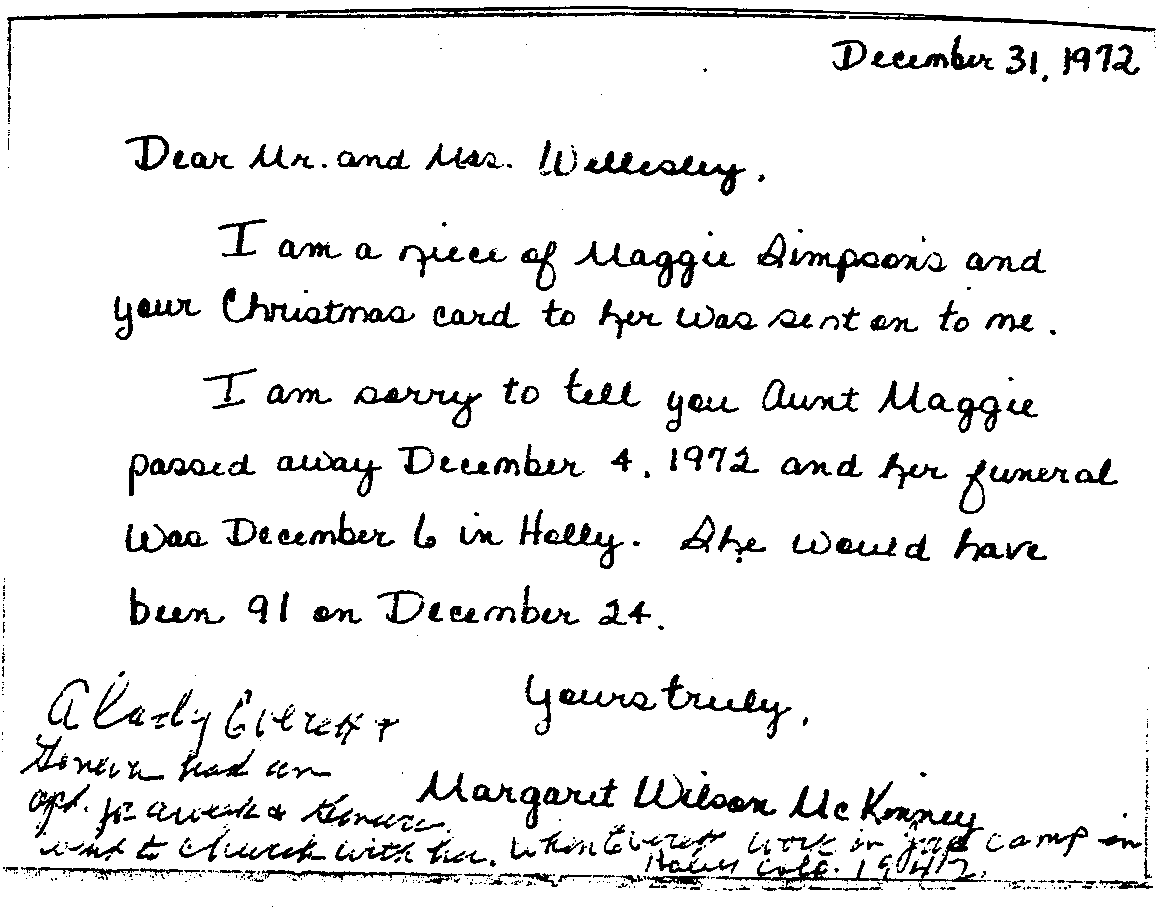 December 31, 1972
Dear Mr. and Mrs. Wellesley,
I am a niece of Maggie Simpson's and
your Christmas card to her was sent on to me.
I am sorry to tell you Aunt Maggie
passed away December 4, 1972 and her funeral
was December 6 in Holly. She would have
been 91 on December 24.
Yours truly,
Margaret Wilson McKinney
A lady Everett +
Geneva had an
apt. for a week & Geneva
went to church with her. When Everett work in jap camp in
Holly Colo. 1942.